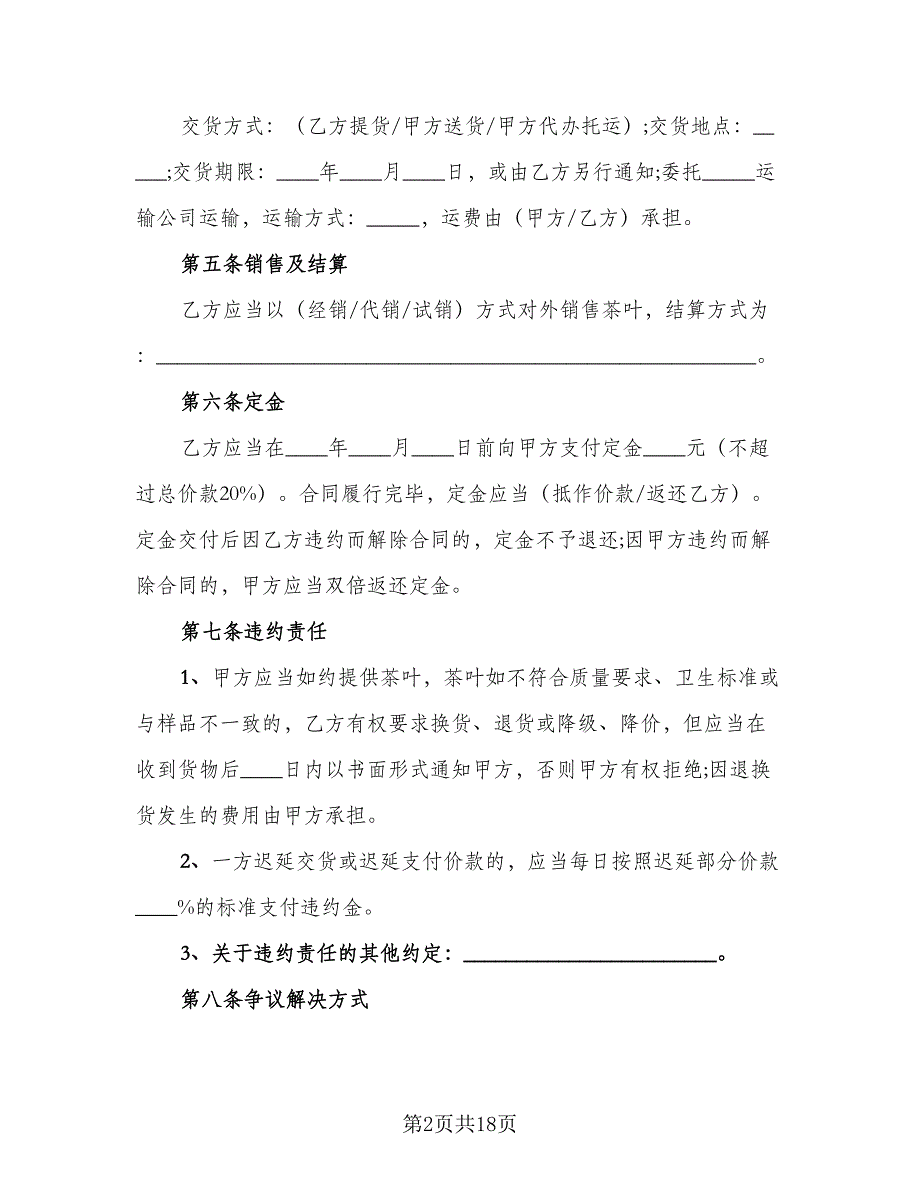 交货方式：（乙方提货/甲方送货/甲方代办托运）;交货地点：__
___;交货期限：____年____月____日，或由乙方另行通知;委托_____运
输公司运输，运输方式：_____，运费由（甲方/乙方）承担。
第五条销售及结算
乙方应当以（经销/代销/试销）方式对外销售茶叶，结算方式为
：_________________________________________________________。
第六条定金
乙方应当在____年____月____日前向甲方支付定金____元（不超
过总价款20%）。合同履行完毕，定金应当（抵作价款/返还乙方）。
定金交付后因乙方违约而解除合同的，定金不予退还;因甲方违约而解
除合同的，甲方应当双倍返还定金。
第七条违约责任
1、甲方应当如约提供茶叶，茶叶如不符合质量要求、卫生标准或
与样品不一致的，乙方有权要求换货、退货或降级、降价，但应当在
收到货物后____日内以书面形式通知甲方，否则甲方有权拒绝;因退换
货发生的费用由甲方承担。
2、一方迟延交货或迟延支付价款的，应当每日按照迟延部分价款
____%的标准支付违约金。
3、关于违约责任的其他约定：________________________。
第八条争议解决方式
第2页共18页